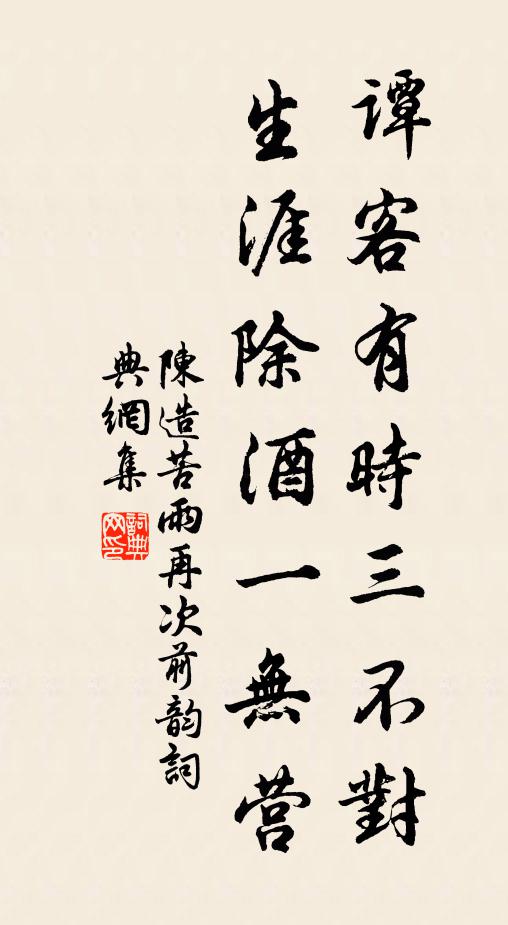 譚客有時三不對
生涯除酒一無营
陳造苦雨再次前韵詞
典網集
詞典网印